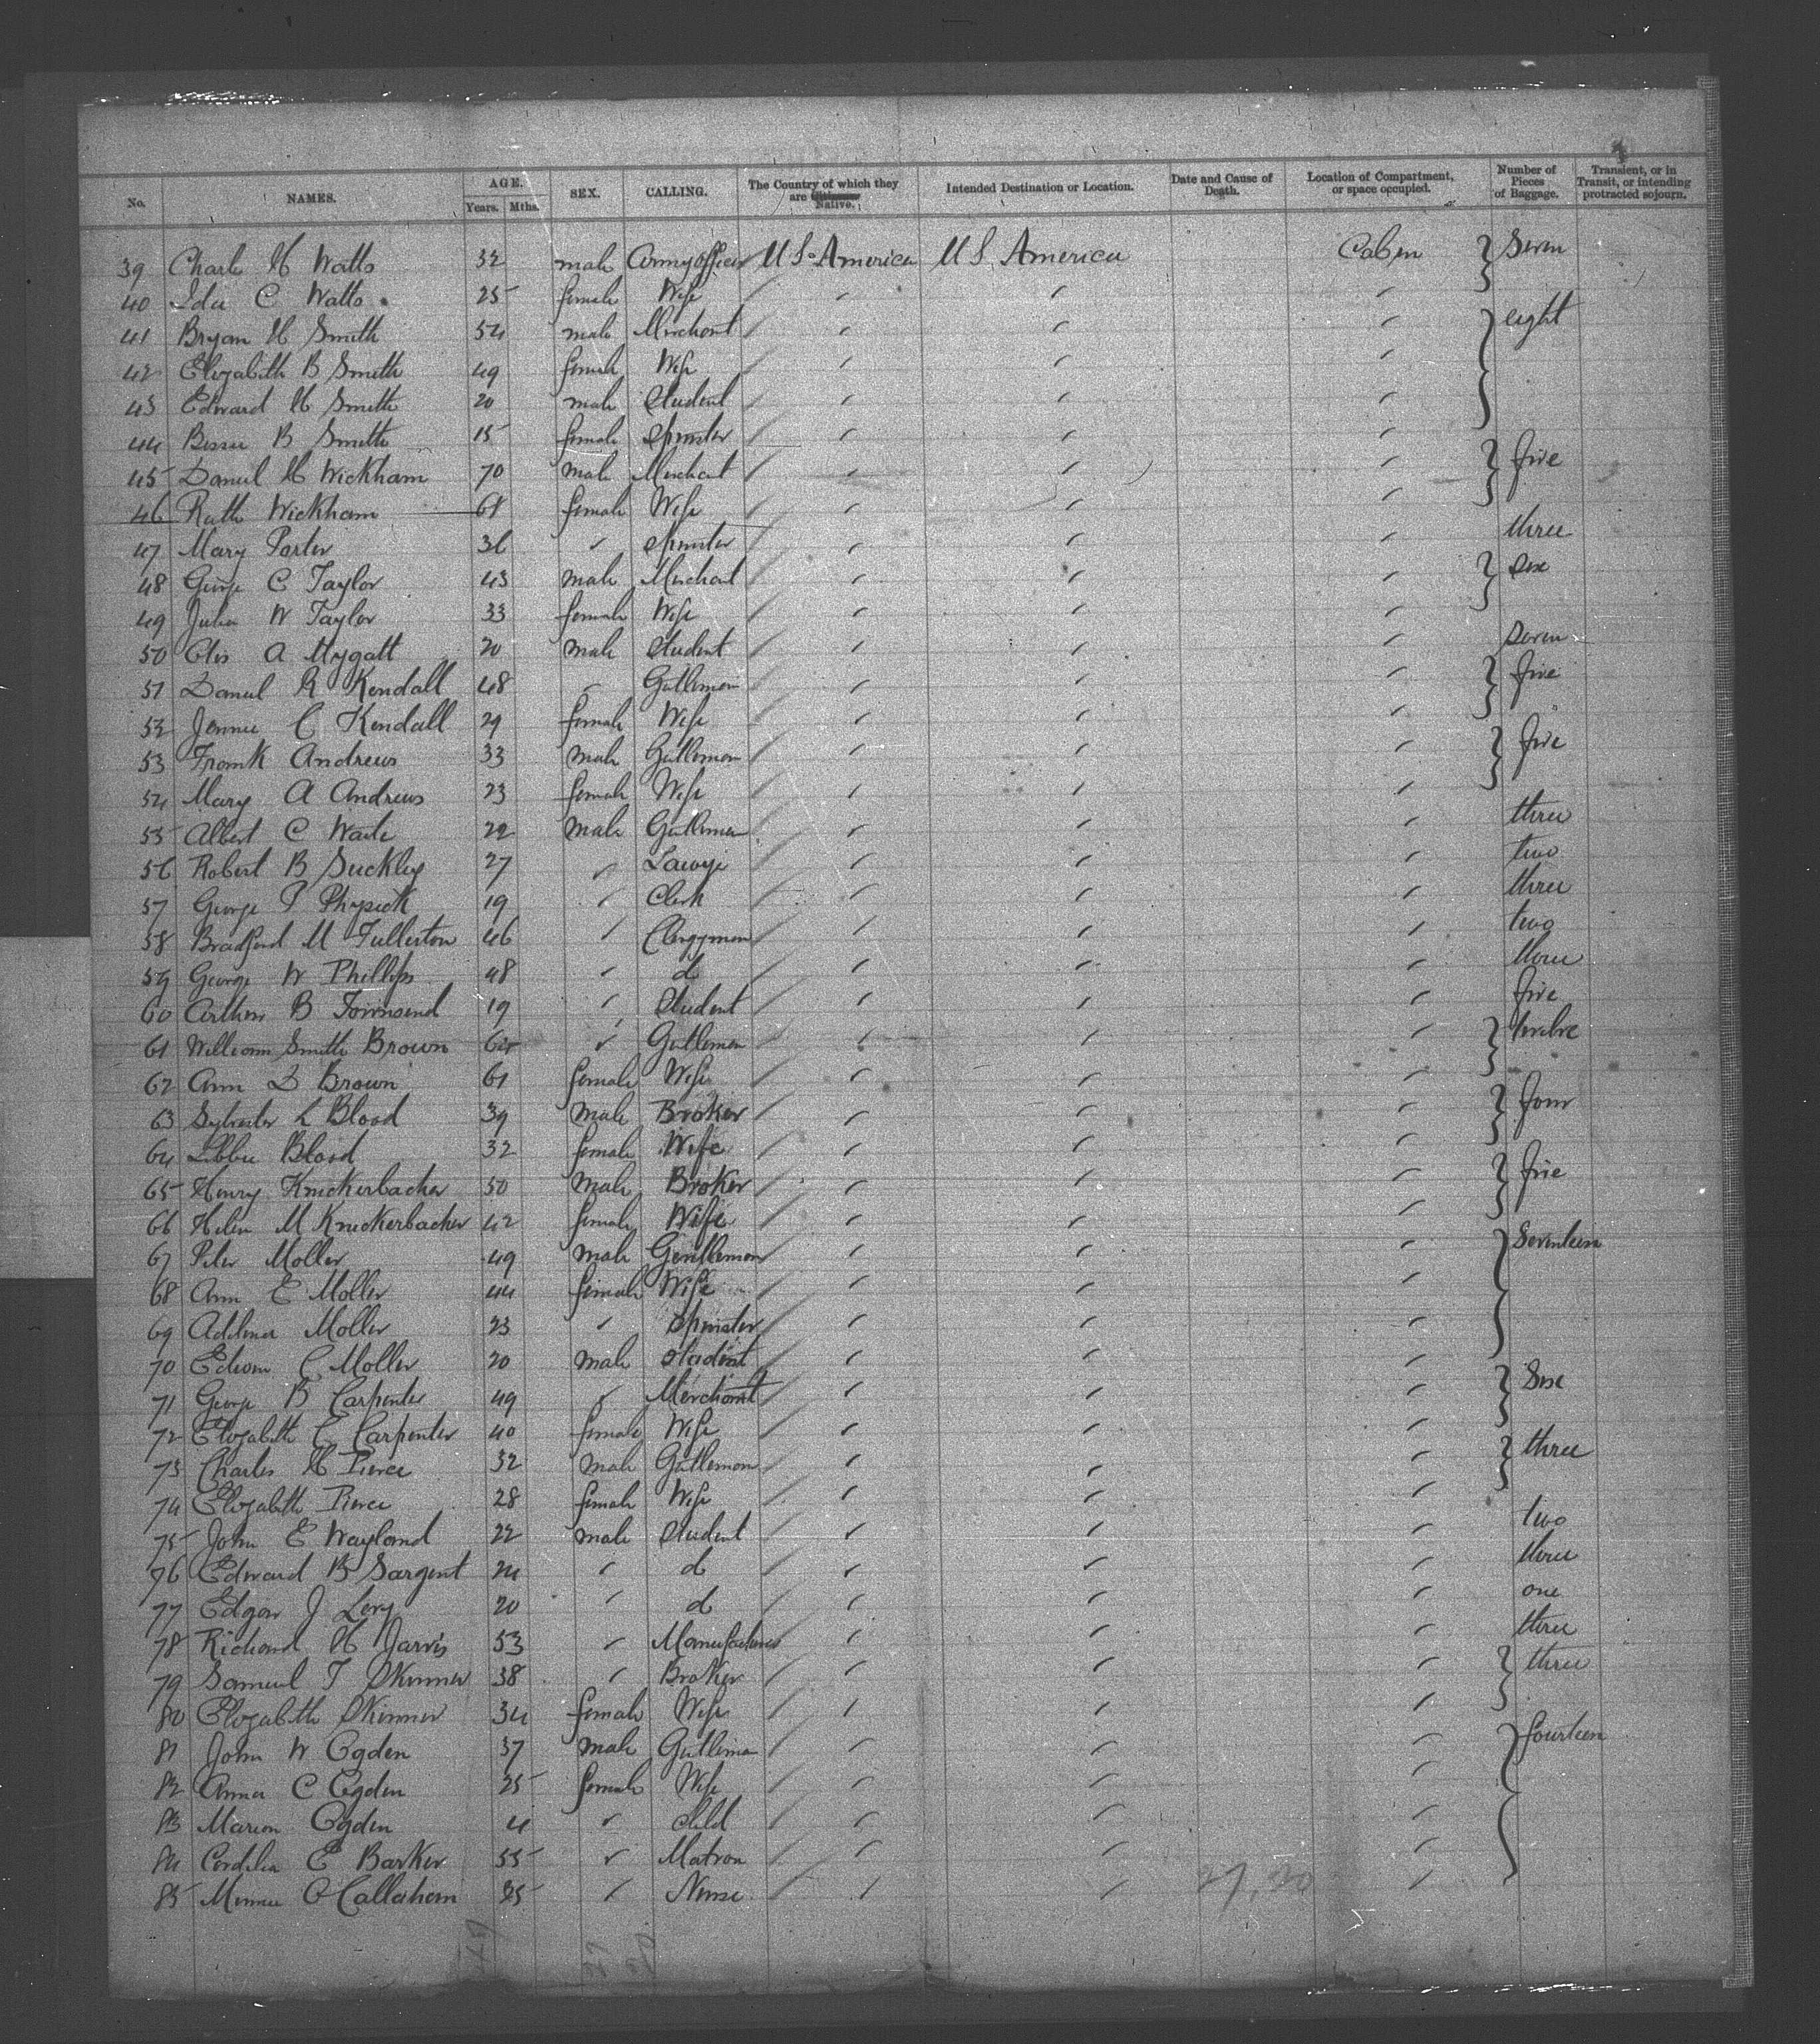 No. NAMES. AGE. Years. Mths. SEX. CALLING. The Country of which they are Native. Intended Destination or Location. Date and Cause of Death. Location of Compartment, or space occupied. Number of Pieces of Baggage. Transient, or in Transit, or intending protracted sojourn.
39 Charls H Watts 32 male Army officer U S America U S. America Cabin } Seven
40 Ida C Watts 25 female Wife
41 Bryan H Smith 54 male Merchant } eight
42 Elizabeth B Smith 49 female Wife
43 Edward H Smith 20 male Student
44 Bessie B Smith 15 female Spinster
45 Daniel H Wickham 70 male Merchant } five
46 Ruth Wickham 61 female Wife
47 Mary Porter 36 " Spinster three
48 George C Taylor 43 male Merchant } Six
49 Julia W Taylor 33 female Wife
50 Otis A Mygatt 20 male Student Seven
51 Daniel R Kendall 48 " Gentleman } five
52 Jennie C Kendall 29 female Wife
53 Frank Andrews 33 male Gentleman } five
54 Mary A Andrews 23 female Wife
55 Albert C Waite 22 male Gentleman three
56 Robert B Suckley 27 " Lawyer two
57 George P Physick 19 " Clerk three
58 Bradford M Fullerton 46 " Clergyman two
59 George W Phillips 48 " do three
60 Arthur B Townsend 19 " Student five
61 William Smith Brown " Gentleman } twelve
62 Ann D Brown 61 female Wife
63 Sylvester L Blood 39 male Broker } four
64 Libbie Blood 32 female Wife
65 Henry Knickerbacker 50 male Broker } five
66 Helen M Knickerbacker 42 female Wife
67 Peter Moller 49 male Gentleman } Seventeen
68 Ann E Moller 44 female Wife
69 Adelina Moller 23 " Spinster
70 Edwin C Moller 20 male Student
71 George B Carpenter 49 " Merchant } Six
72 Elizabeth C Carpenter 40 female Wife
73 Charles H Pierce 32 male Gentleman } three
74 Elizabeth Pierce 28 female Wife
75 John E Wayland 22 male Student two
76 Edward B Sargent 21 " do three
77 Edgar J Levy 20 " do one
78 Richard H Jarvis 53 " Manufacturer three
79 Samuel T Skinner 38 " Broker } three
80 Elizabeth Skinner 34 female Wife
81 John W Ogden 37 male Gentleman } fourteen
82 Anna C Ogden 25 female Wife
83 Marion Ogden 4 " child
84 Cordelia E Barker 55 " Matron
85 Minnie O Callaham 25 " Nurse